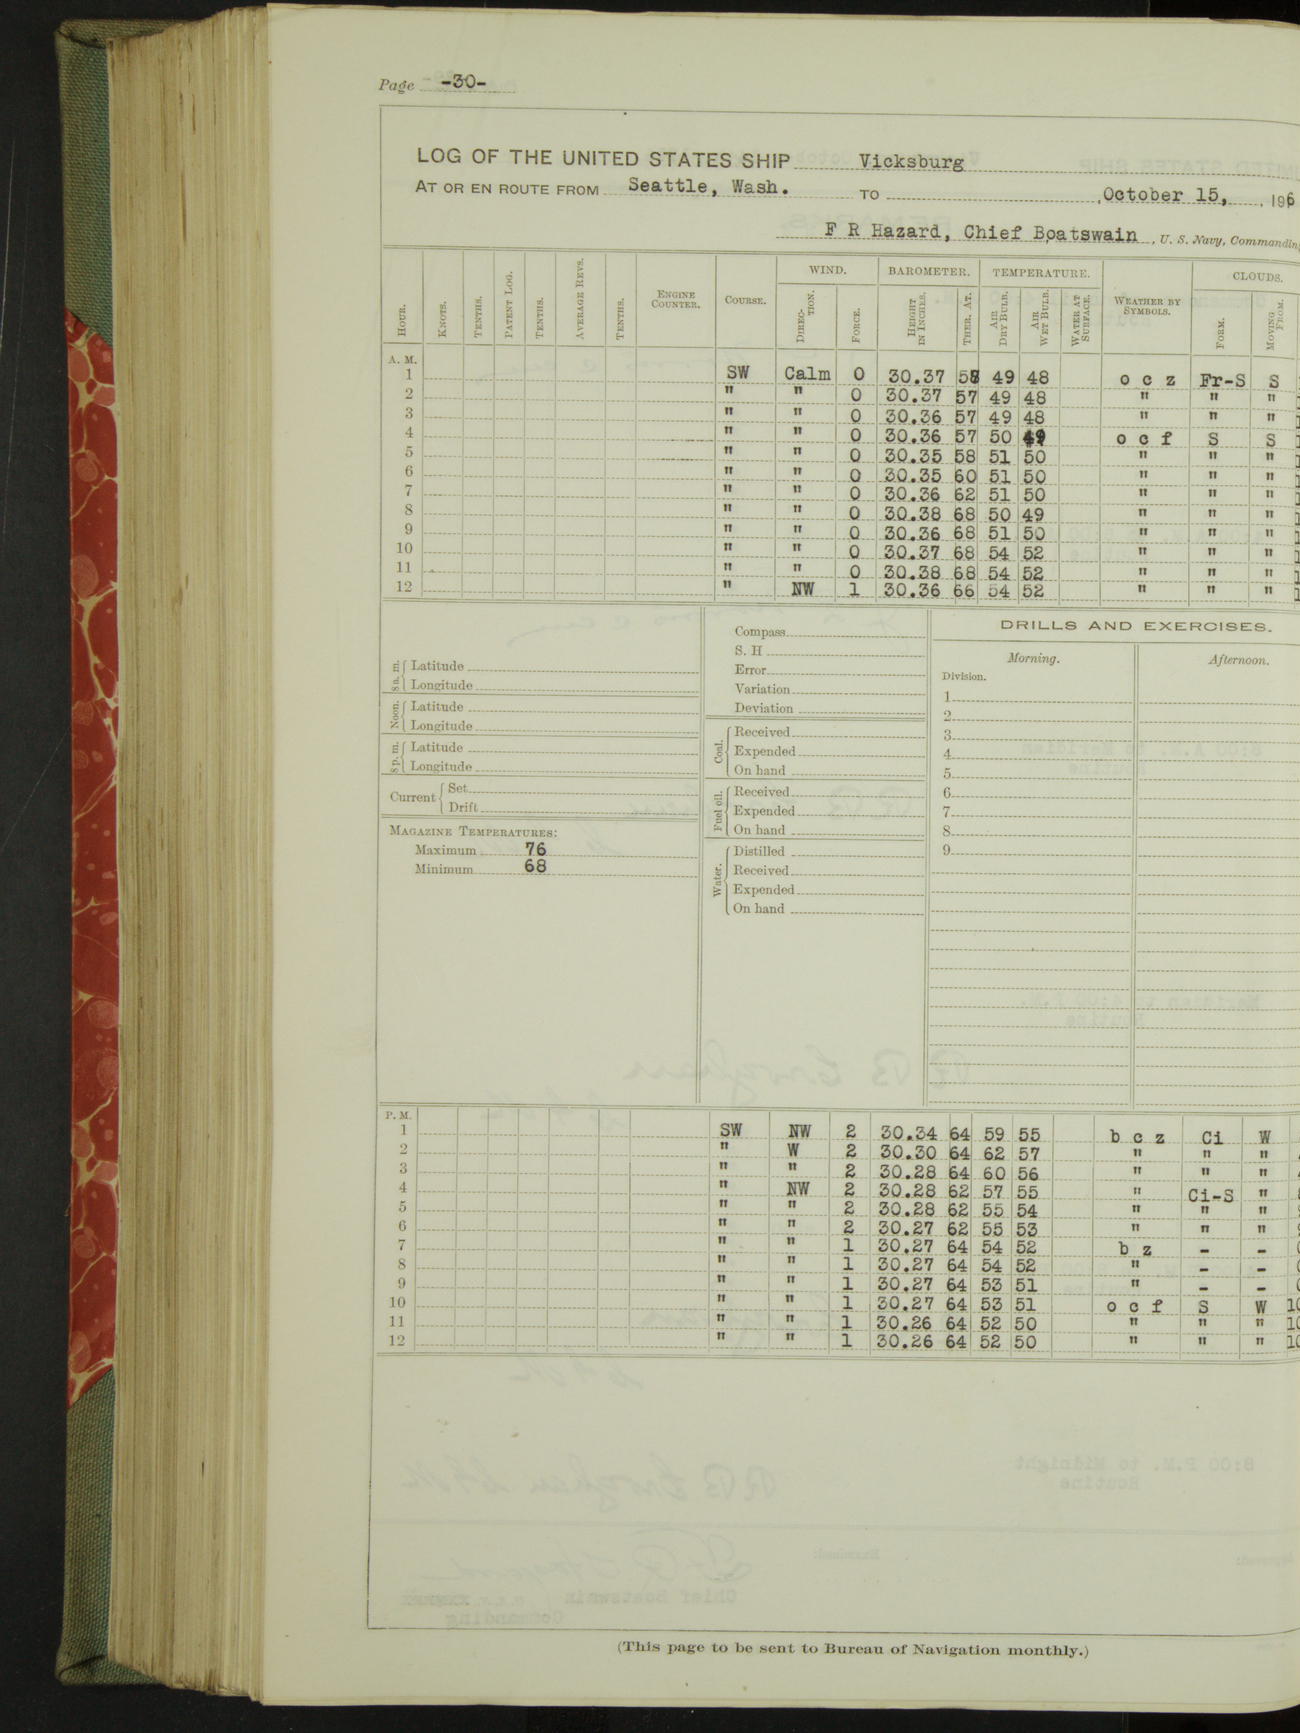 Page -30-
LOG OF THE UNITED STATES SHIP Vicksburg
AT OR EN ROUTE FROM Seattle, Wash. TO , October 15, , 19
F R Hazard, Chief Boatswain , U. S. Navy, Commanding
WIND. BAROMETER. TEMPERATURE. CLOUDS.
HOUR. KNOTS. TENTHS. PATENT LOG. TENTHS. AVERAGE REVS. TENTHS. ENGINE COUNTER. COURSE. DIRECTION. FORCE. HEIGHT IN INCHES. THER. AT. AIR DRY BULB. AIR WET BULB. WATER AT SURFACE. WEATHER BY SYMBOLS. FORM. MOVING FROM.
A. M.
1 SW Calm 0 30.37 58 49 48 o c z Fr-S S
2 " " 0 30.37 57 49 48 " " "
3 " " 0 30.36 57 49 48 " " "
4 " " 0 30.36 57 50 49 o c f S S
5 " " 0 30.35 58 51 50 " " "
6 " " 0 30.35 60 51 50 " " "
7 " " 0 30.36 62 51 50 " " "
8 " " 0 30.38 68 50 49 " " "
9 " " 0 30.36 68 51 50 " " "
10 " " 0 30.37 68 54 52 " " "
11 " " 0 30.38 68 54 52 " " "
12 " NW 1 30.36 66 54 52 " " "
8 a. m. Latitude
Longitude
Noon. Latitude
Longitude
8 p. m. Latitude
Longitude
Current Set
Drift
MAGAZINE TEMPERATURES:
Maximum 76
Minimum 68
Compass
S. H
Error
Variation
Deviation
Coal. Received
Expended
On hand
Fuel oil. Received
Expended
On hand
Water. Distilled
Received
Expended
On hand
DRILLS AND EXERCISES.
Morning. Afternoon.
Division.
1
2
3
4
5
6
7
8
9
P. M.
1 SW NW 2 30.34 64 59 55 b c z Ci W
2 " W 2 30.30 64 62 57 " " "
3 " " 2 30.28 64 60 56 " " "
4 " NW 2 30.28 62 57 55 " Ci-S "
5 " " 2 30.28 62 55 54 " " "
6 " " 2 30.27 62 55 53 " " "
7 " " 1 30.27 64 54 52 b z - -
8 " " 1 30.27 64 54 52 " - -
9 " " 1 30.27 64 53 51 " - -
10 " " 1 30.27 64 53 51 o c f S W 10
11 " " 1 30.26 64 52 50 " " " 10
12 " " 1 30.26 64 52 50 " " " 10
(This page to be sent to Bureau of Navigation monthly.)